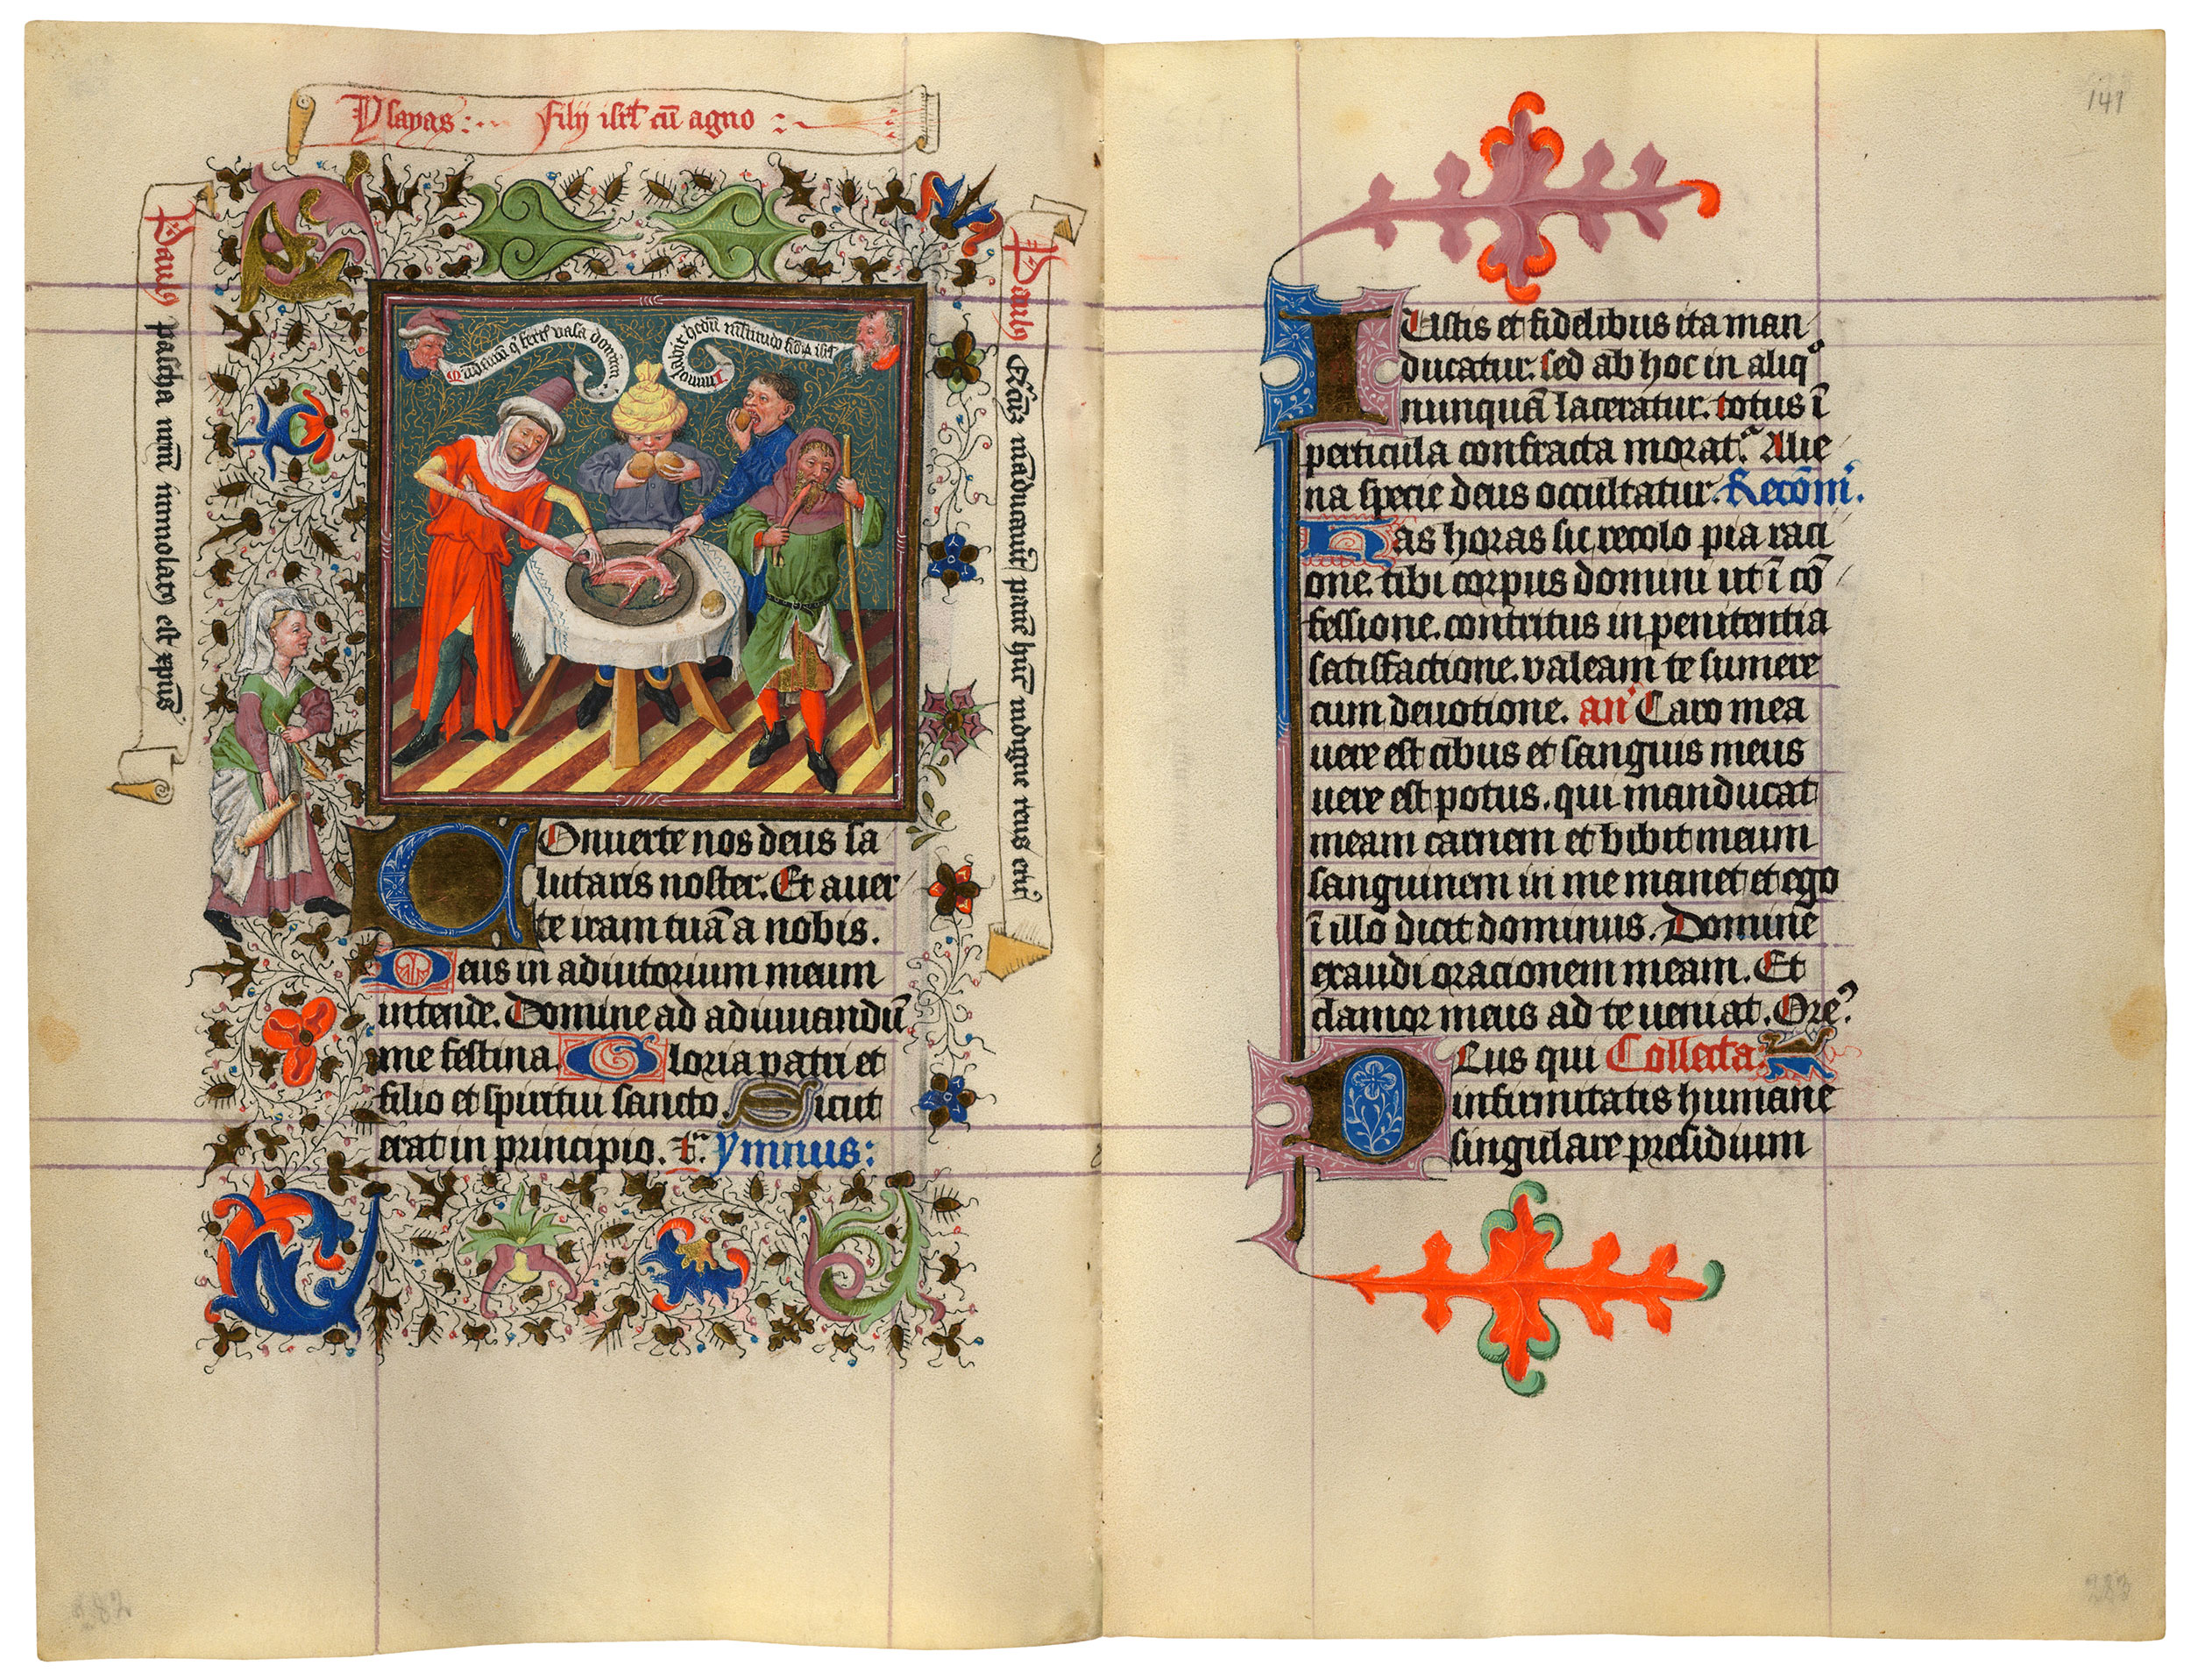 Ysayas: filij isrl' cū agno :
Paulus pascha nrm̄ immolatus est xpūs
Mūdamī q' fertis vasa domīni
Immolabit hedū
Paulus Qcūqz māducauit panē hūc indigne reus erit
COnuerte nos deus sa
lutaris noster. Et auer
te iram tuā a nobis.
Deus in adiutorium meum
intende. Domine ad adiuuandū
me festina. Gloria patri et
filio et spiritui sancto. Sicut
erat in principio. ymnus:
282
141
IUstis et fidelibus ita man
ducatur. sed ab hoc in aliq°
nunquā laceratur. totus ī
perticula confracta morat'. Alie
na specie deus occultatur. Recōm'.
Has horas sic recolo pia raci
one. tibi corpus domini ut ī cō
fessione. contritus in penitentia
satisfactione. valeam te sumere
cum deuotione. an' Caro mea
uere est cibus et sanguis meus
uere est potus. qui manducat
meam carnem et bibit meum
sanguinem in me manet et ego
ī illo dicit dominus. Domine
exaudi oracionem meam. Et
clamor meus ad te ueniat. Ore'.
DEus qui Collecta:
infirmitatis humane
singulare presidium
283